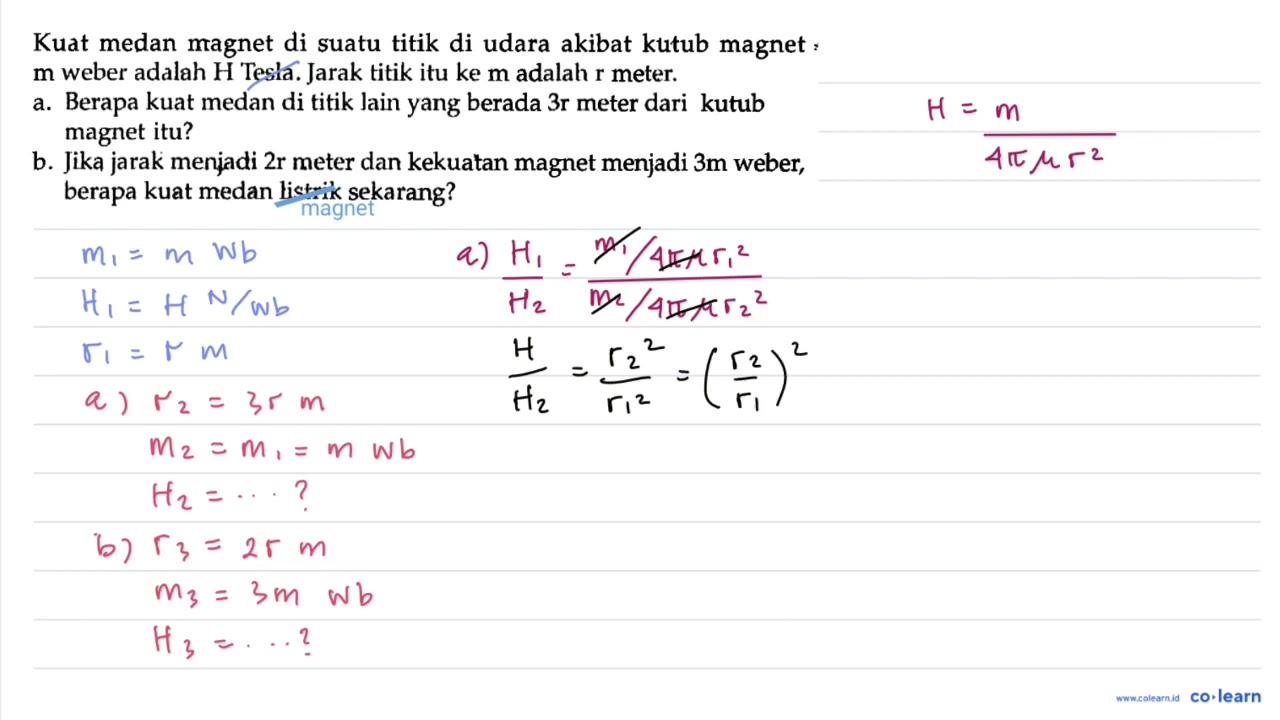 Kuat medan magnet di suatu titik di udara akibat kutub magnet
m weber adalah H Tesla. Jarak titik itu ke m adalah r meter.
a. Berapa kuat medan di titik lain yang berada 3r meter dari kutub
magnet itu?
b. Jika jarak menjadi 2r meter dan kekuatan magnet menjadi 3m weber,
berapa kuat medan listrik sekarang?
magnet
H = m / 4πμr²
m₁ = m Wb
H₁ = H N/Wb
r₁ = r m
a) r₂ = 3r m
m₂ = m₁ = m Wb
H₂ = .... ?
b) r₃ = 2r m
m₃ = 3m Wb
H₃ = ....?
a) H₁/H₂ = m₁/4πμr₁² / m₂/4πμr₂²
H/H₂ = r₂²/r₁² = (r₂/r₁)²
www.colearn.id co·learn